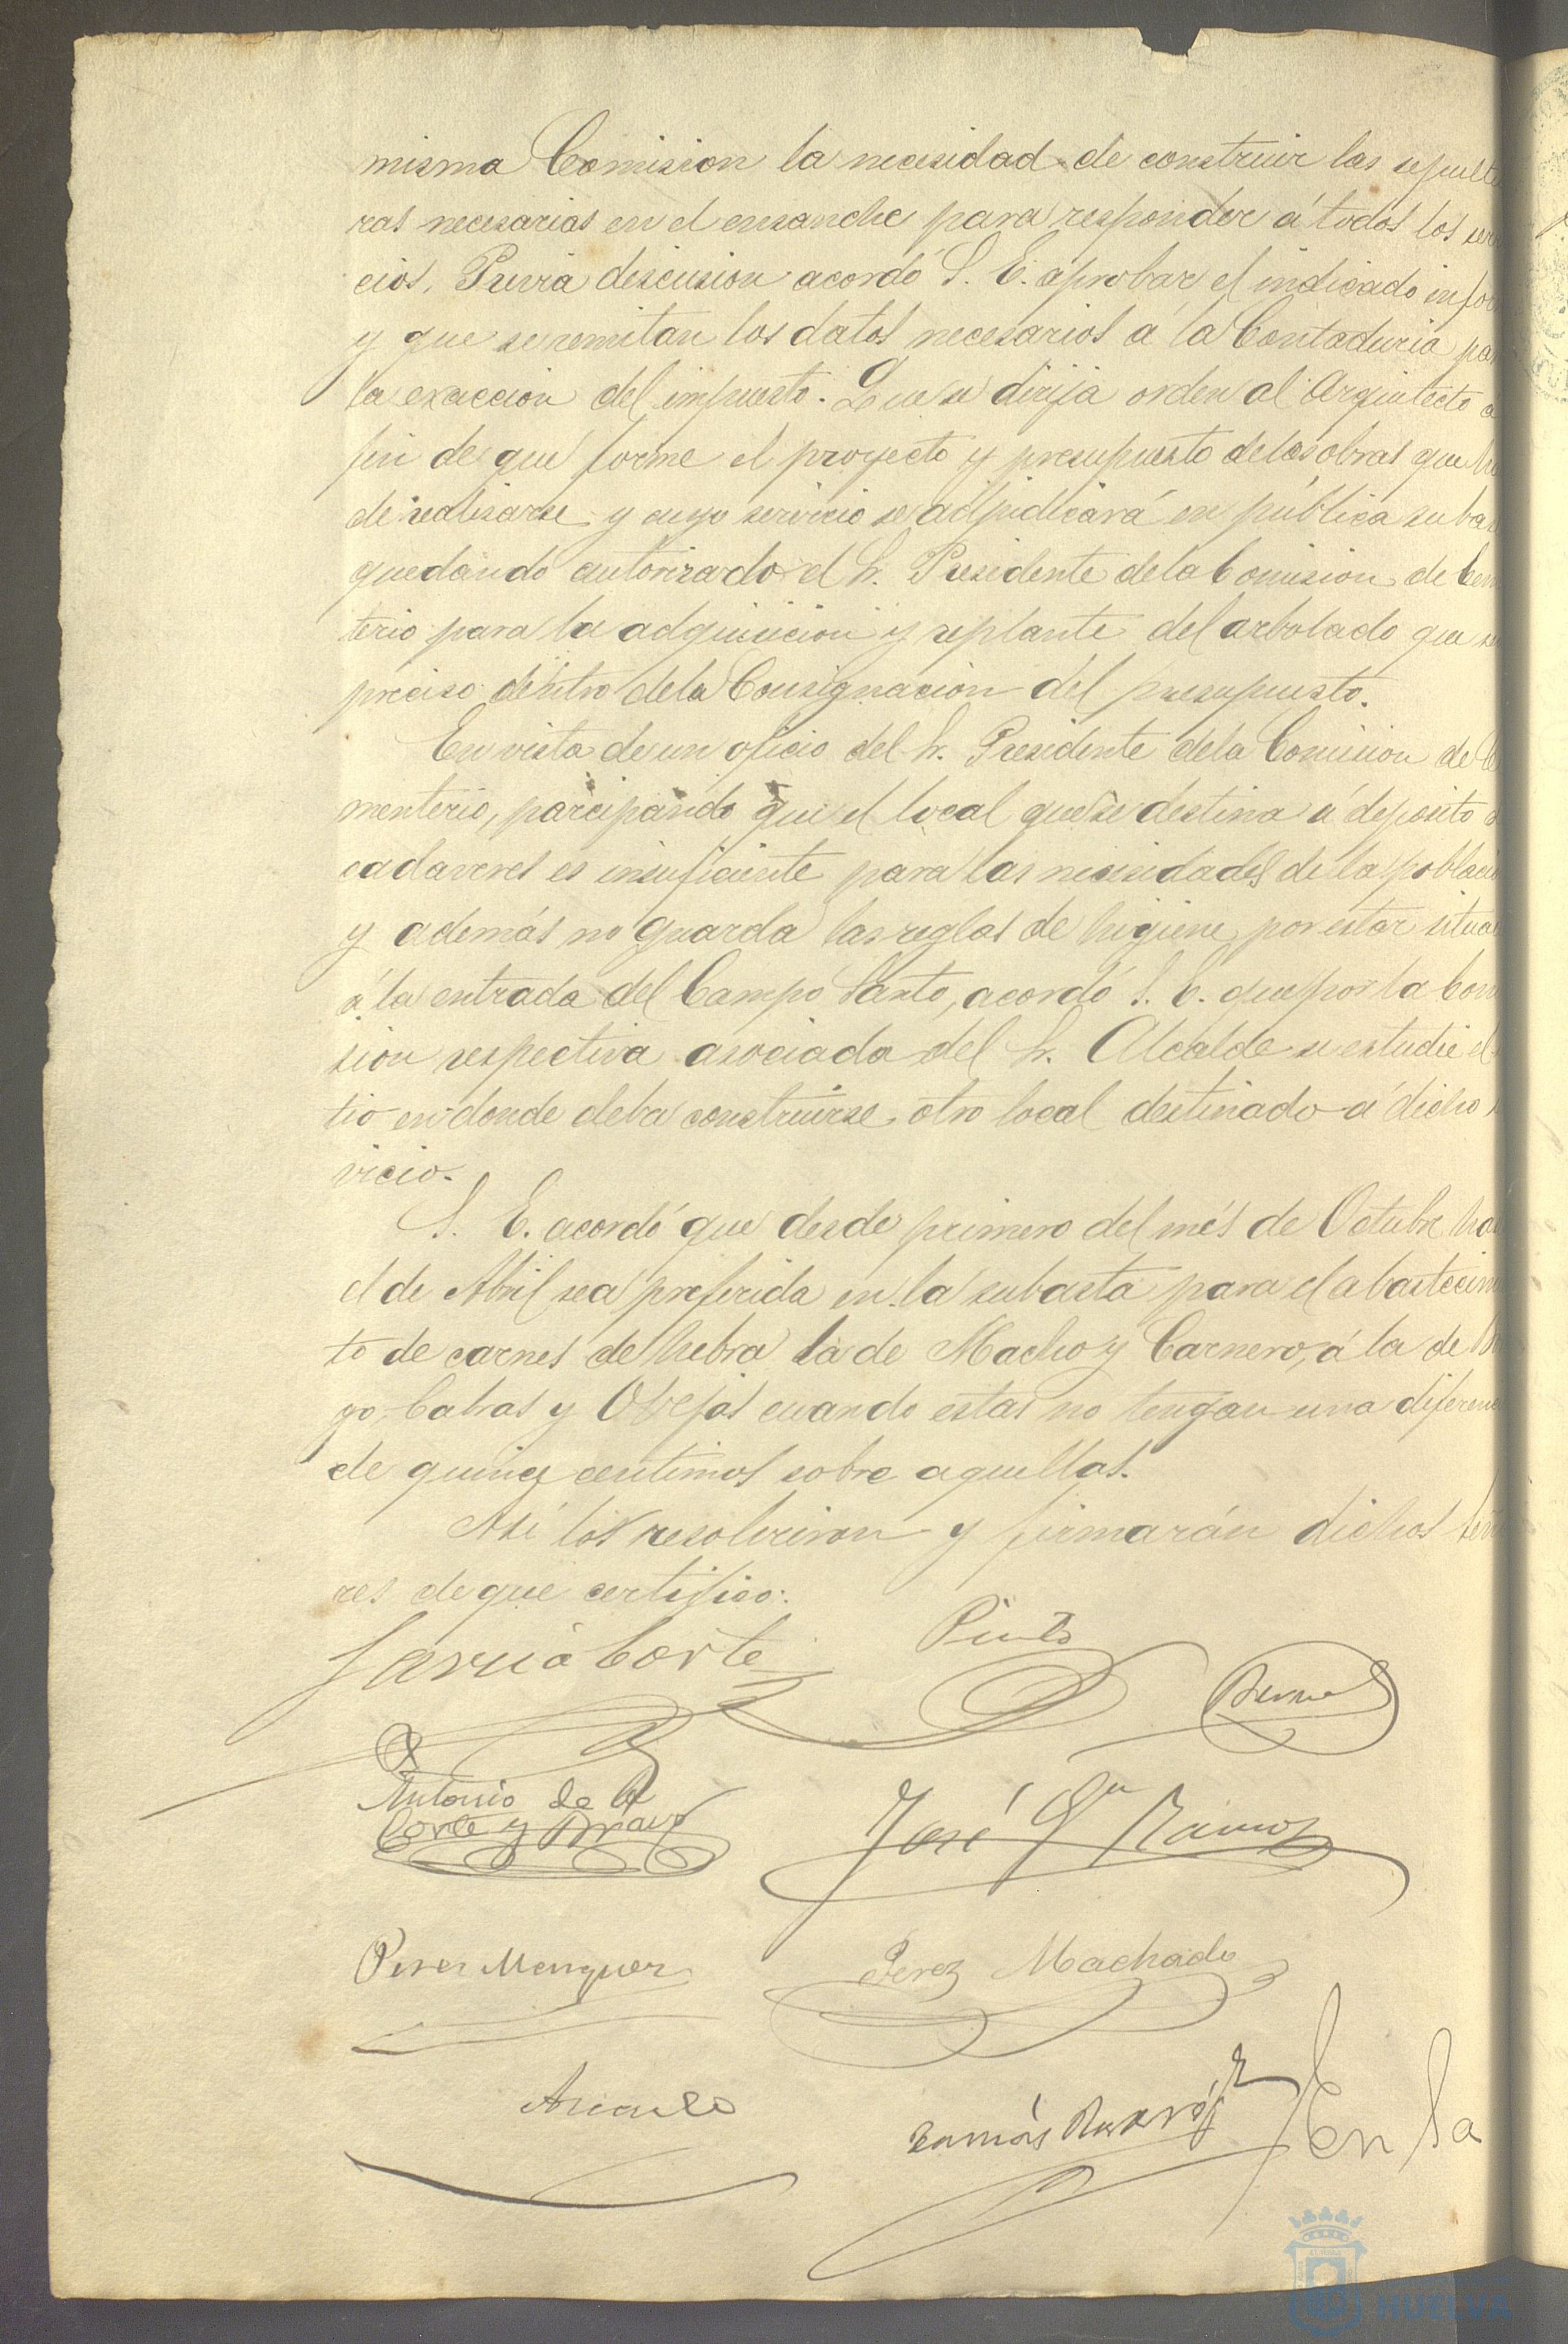 misma Comision la necesidad de construir las sepultu
ras necesarias en el ensanche para responder á todos los ser
cios. Previa descusion acordó S. E. aprobar el indicado infor
y que se remitan los datos necesarios á la Contaduria par
la exaccion del impuesto. Que se dirija orden al Arquitecto a
fin de que forme el proyecto y presupuesto de las obras que ha
de realisarse y cuyo servicio se adjudicará en pública subas
quedando autorizado el Sr. Presidente de la Comision de Cem
terio para la adquisicion y replante del arbolado que se
preciso dentro de la Consignacion del presupuesto.
En vista de un oficio del Sr. Presidente de la Comision de Ce
menterio, parcipando que el local que se destina á deposito d
cadaveres es insuficiente para las necesidades de la poblacio
y además no guarda las reglas de higiene por estar situad
á la entrada del Campo Santo, acordó S. E. que por la Comi
sion respectiva asociada del Sr. Alcalde se estudie el
tio en donde deba construirse otro local destinado á dicho
vicio.
S. E. acordó que desde primero del més de Octubre has
el de Abril sea preferida en la subasta para el abastecim
to de carnes de hebra la de Macho y Carnero, á la de
go, Cabras y Ovejas cuando estas no tengan una diferenc
de quince centimos sobre aquellas.
Asi los resolvieron y firmarán dichos Seño
res de que certifico.
Garcia Corte
Pinto
Bernal
Antonio de la
Corte y Bravo
José Gª Ramos
Perez Menguer
Perez Machado
Tomás
En la
HUELVA